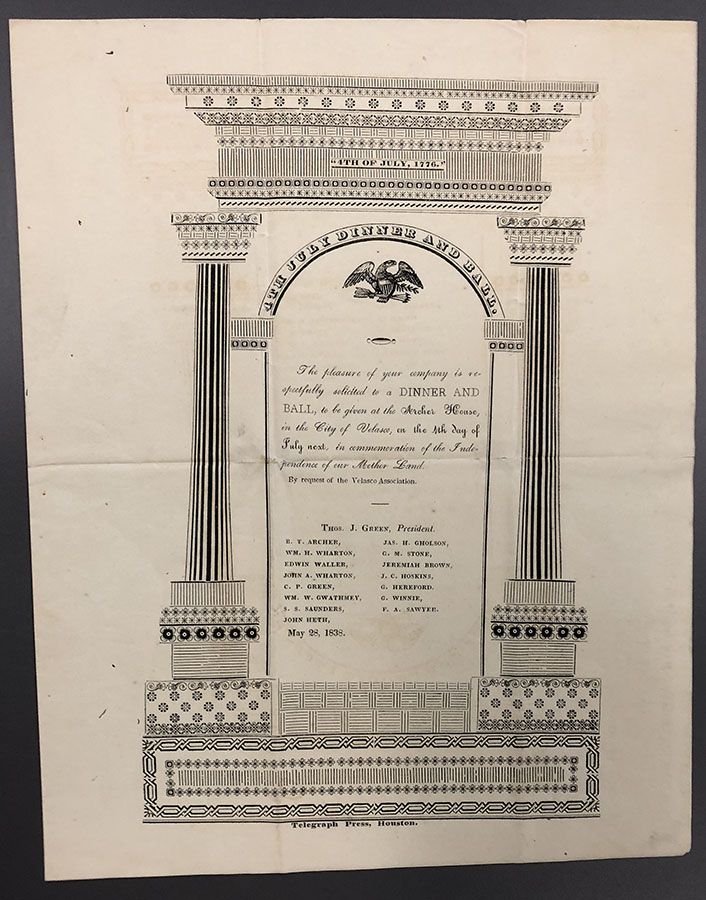 "4TH OF JULY, 1776."
4TH JULY DINNER AND BALL.
The pleasure of your company is re-
spectfully solicited to a DINNER AND
BALL, to be given at the Archer House,
in the City of Velasco, on the 4th day of
July next, in commemoration of the Inde-
pendence of our Mother Land.
By request of the Velasco Association.
Thos. J. Green, President.
B. T. ARCHER,
WM. H. WHARTON,
EDWIN WALLER,
JOHN A. WHARTON,
C. P. GREEN,
WM. W. GWATHMEY,
S. S. SAUNDERS,
JOHN HETH,
JAS. H. GHOLSON,
G. M. STONE,
JEREMIAH BROWN,
J. C. HOSKINS,
G. HEREFORD.
G. WINNIE,
F. A. SAWYER.
May 28, 1838.
Telegraph Press, Houston.